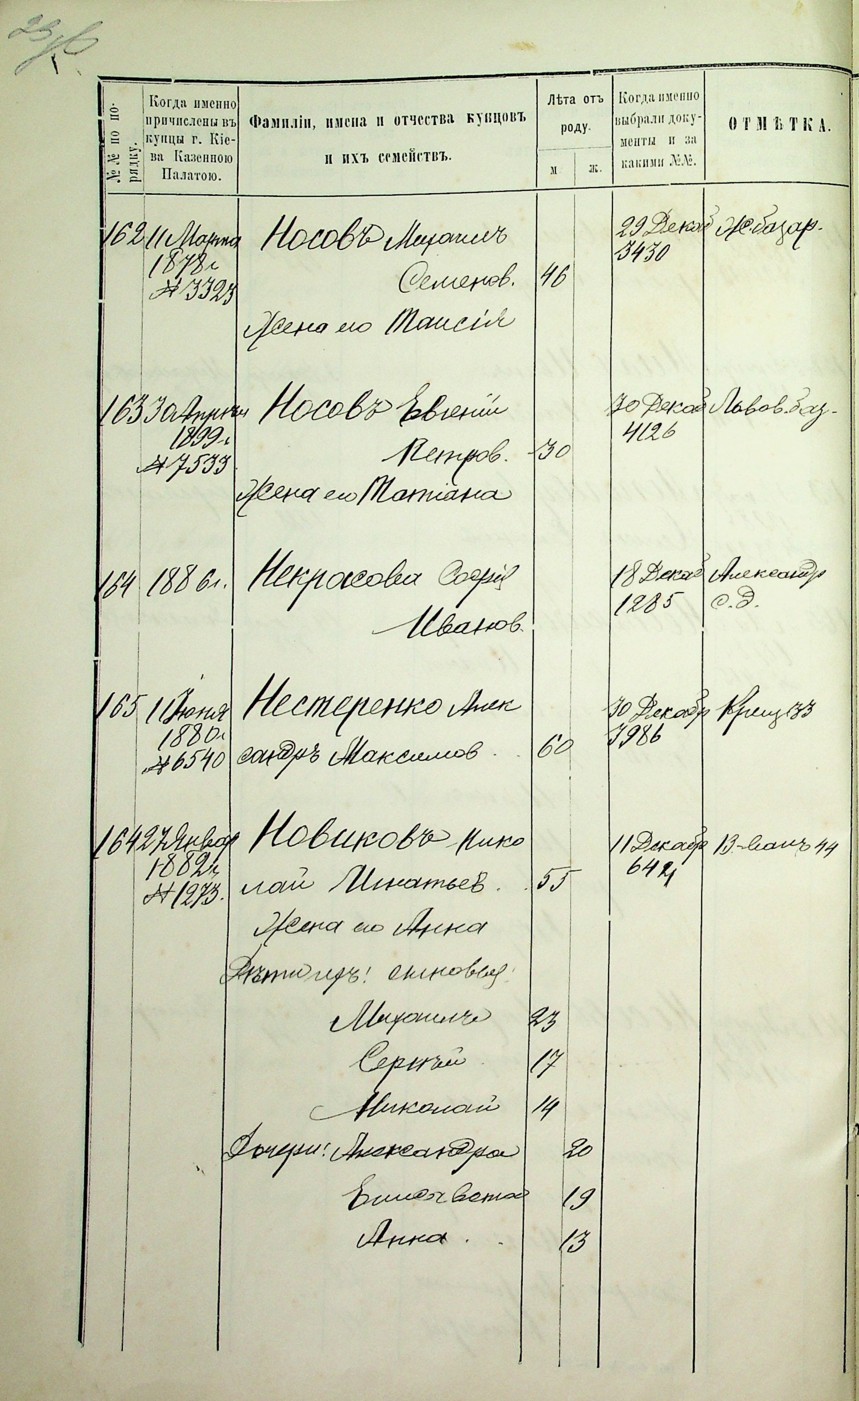 №№ по по-
рядку.
Когда именно
причислены въ
купцы г. Кіе-
ва Казенною
Палатою.
Фамиліи, имена и отчества купцовъ
и ихъ семействъ.
Лѣта отъ
роду.
м
ж.
Когда именно
выбрали доку-
менты и за
какими №№.
ОТМѢТКА.
162 11 Марта Носовъ Михаилъ 29 Декаб Ж. базар.
1878г 3430
№ 3323 Семенов. 46
Жена его Таисія
163 30 Апрѣля Носовъ Евгеній 30 Декаб Львов. баз.
1899г 4126
№ 7533 Петров. 30
Жена его Татіана
164 1886г. Некрасова Софія 18 Декаб Александр
1285 с. д.
Иванов.
165 11 Іюня Нестеренко Алек 30 Декабр Крещ 33
1880г 3986
№ 6540 сандръ Максимов 60
164 27 Январ Новиковъ Нико 11 Декабр В-Вать 44
1882г 642
№ 1273. лай Игнатьев. 55
Жена его Анна
Дѣти ихъ: сыновья:
Михаилъ 23
Сергѣй 17
Николай 14
Дочери: Александра 20
Елисавета 19
Анна 13